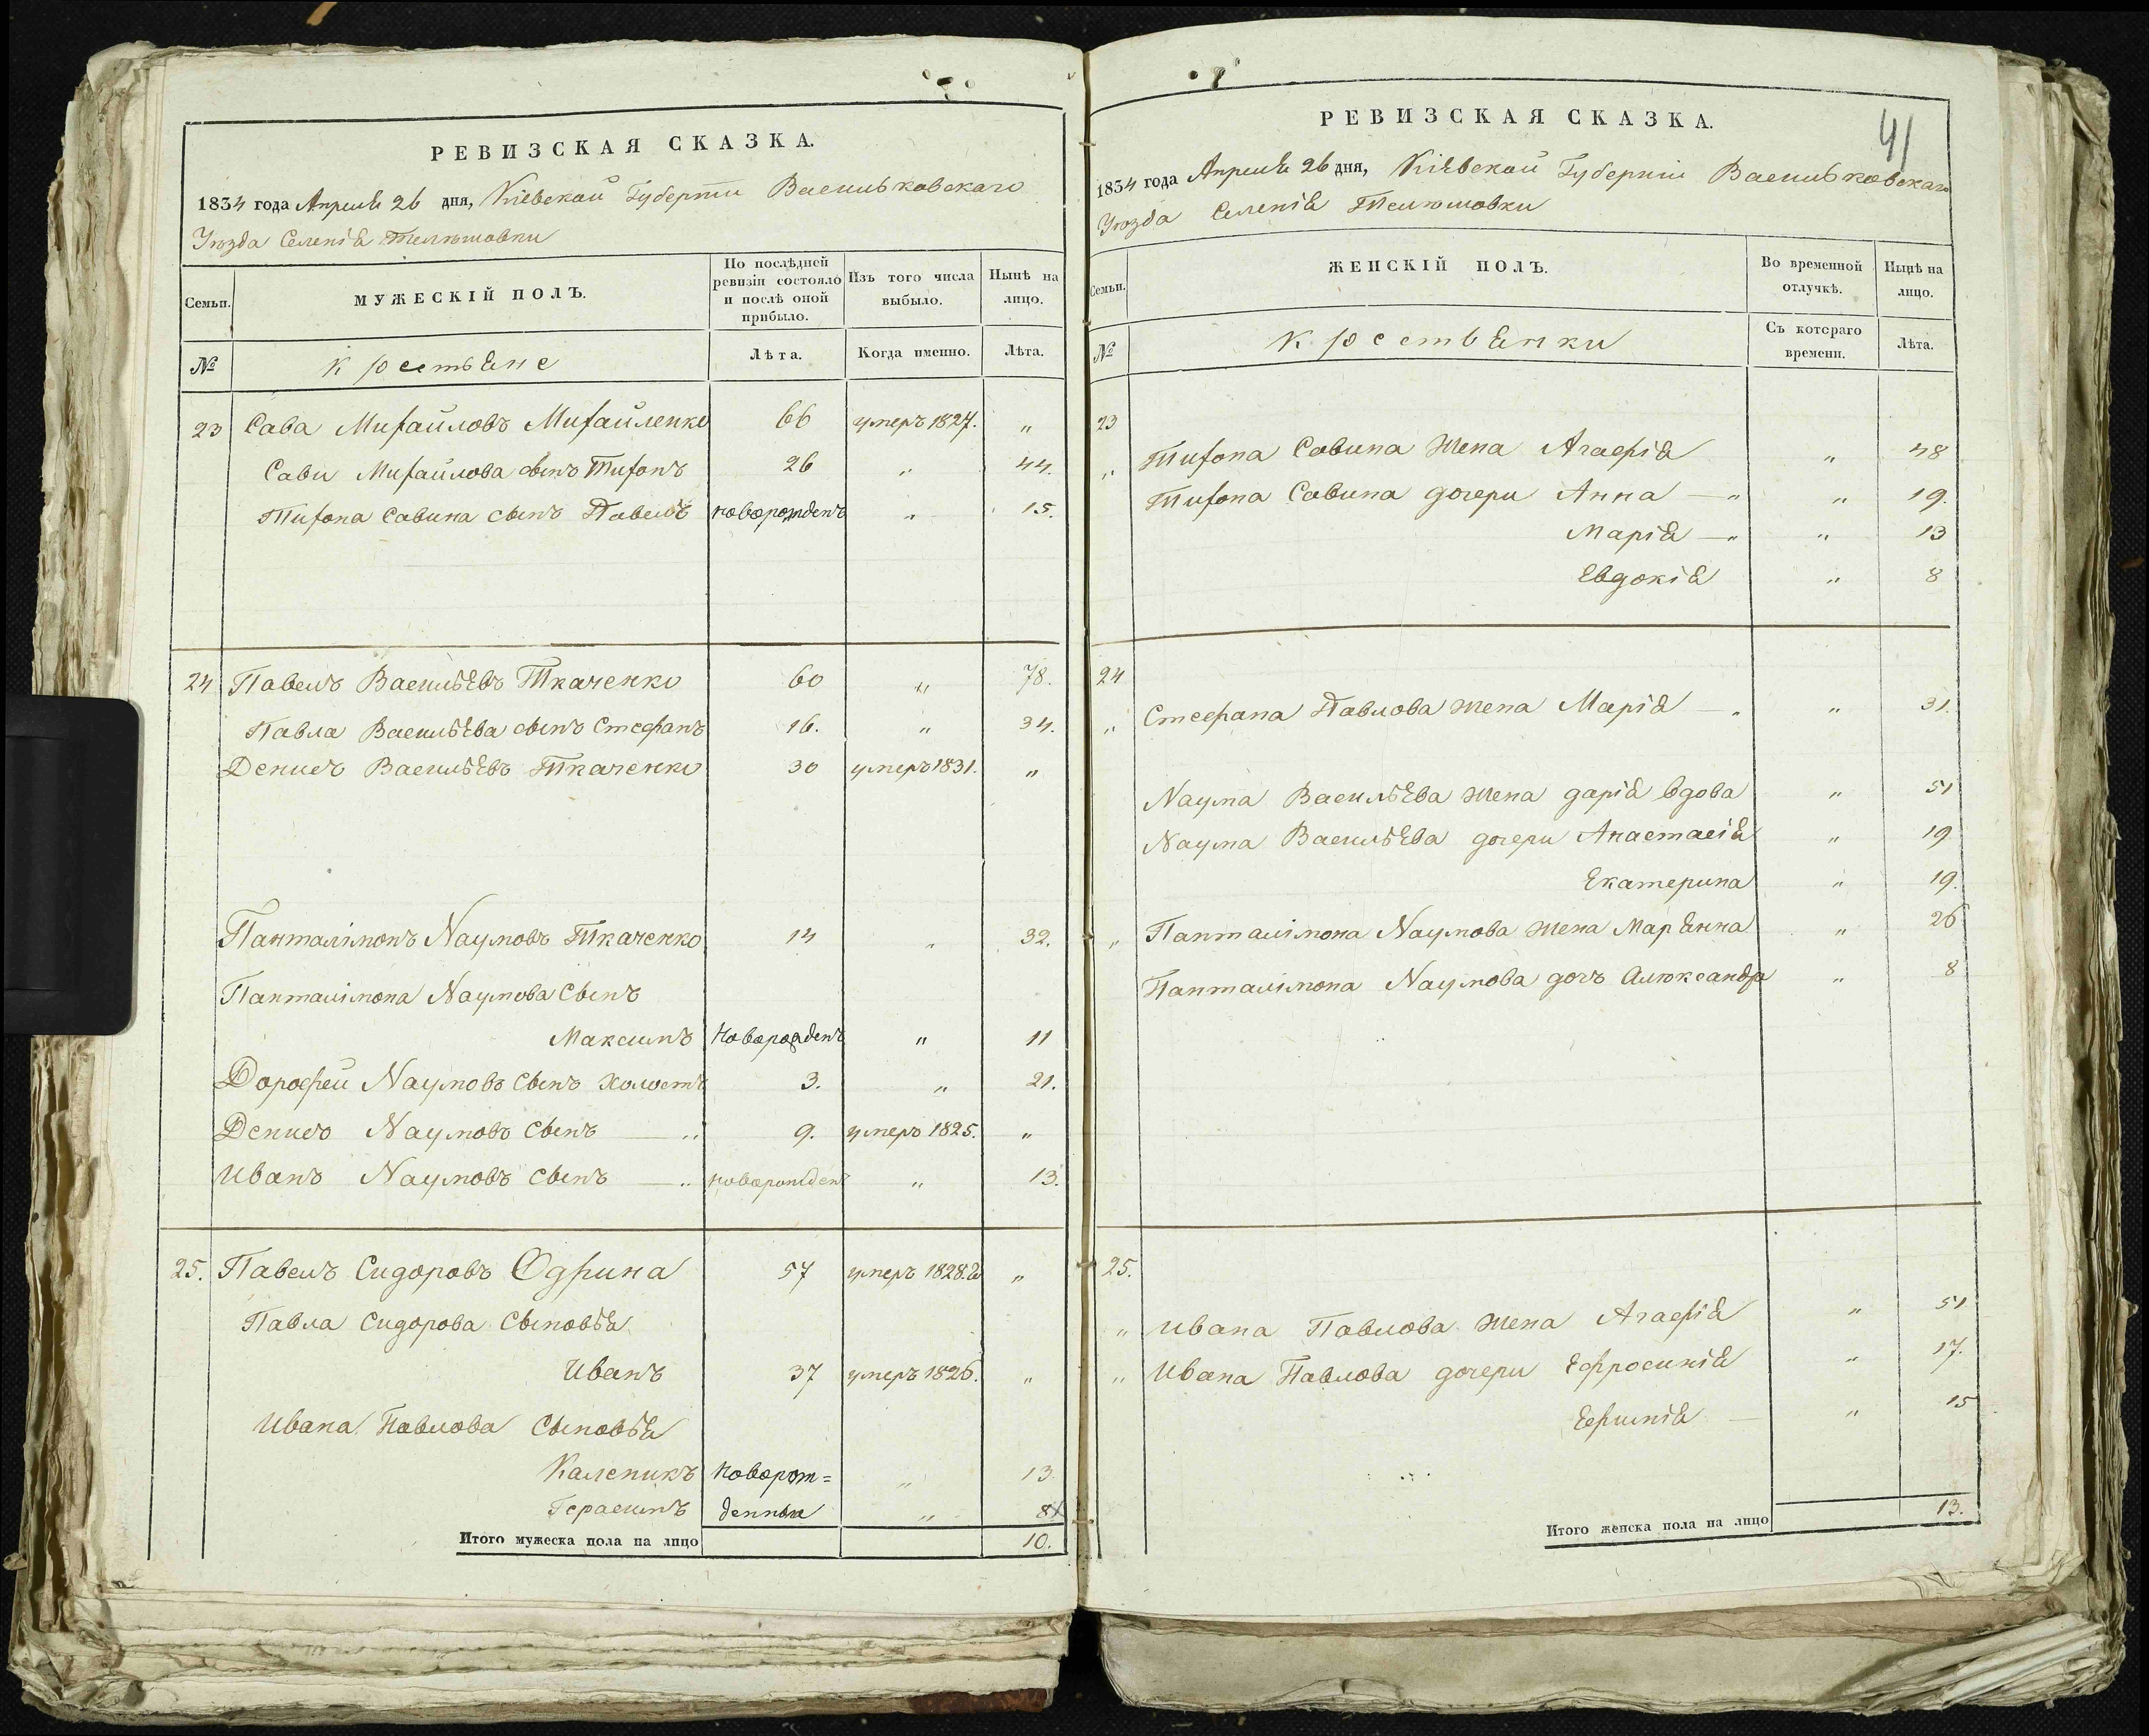 РЕВИЗСКАЯ СКАЗКА.
1834 года Апреля 26 дня, Кіевской Губерніи Васильковскаго
Уезда Селенія Телюшовки
Семьи.
МУЖЕСКІЙ ПОЛЪ.
По послѣдней ревизіи состояло и послѣ оной прибыло.
Изъ того числа выбыло.
Нынѣ на лицо.
№
крестьяне
Лѣта.
Когда именно.
Лѣта.
23 Сава Михайловъ Михайленко 66 умеръ 1827. „
Сави Михайлова сынъ Тихонъ 26 „ 44.
Тихона Савина сынъ Павелъ новорожденъ „ 15.
24 Павелъ Васильевъ Ткаченко 60 „ 78.
Павла Васильева сынъ Стефанъ 16. „ 34.
Денисъ Васильевъ Ткаченко 30 умеръ 1831. „
Панталімонъ Наумовъ Ткаченко 14 „ 32.
Панталімона Наумова Сынъ
Максимъ Новорожденъ „ 11
Дорофей Наумовъ сынъ холостъ 3. „ 21.
Денисъ Наумовъ сынъ — „ 9. умеръ 1825. „
Иванъ Наумовъ сынъ — „ новорожден „ 13.
25. Павелъ Сидоровъ Одрина 57 умеръ 1828. „
Павла Сидорова Сыновья
Иванъ 37 умеръ 1826. „
Ивана Павлова Сыновья
Каленикъ новорож= „ 13
Герасимъ денныя „ 8
Итого мужеска пола на лицо 10.
41
РЕВИЗСКАЯ СКАЗКА.
1834 года Апреля 26 дня, Кіевской Губерніи Васильковскаго
Уезда Селенія Телюшовки
Семьи.
ЖЕНСКІЙ ПОЛЪ.
Во временной отлучкѣ.
Нынѣ на лицо.
№
крестьянки
Съ котораго времени.
Лѣта.
23
„ Тихона Савина жена Агафія „ 48
Тихона Савина дочери Анна — „ „ 19.
Марія — „ „ 13
Евдокія „ 8
24
„ Стефана Павлова жена Марія — „ „ 31.
Наума Васильева жена дарія вдова „ 51
Наума Васильева дочери Анастасія „ 19
Екатерина „ 19.
„ Панталімона Наумова жена Марянна „ 26
Панталімона Наумова дочь Александра „ 8
25.
„ Ивана Павлова жена Агафія „ 51
„ Ивана Павлова дочери Ефросинія „ 17.
Ефимія — „ 15
Итого женска пола на лицо 13.